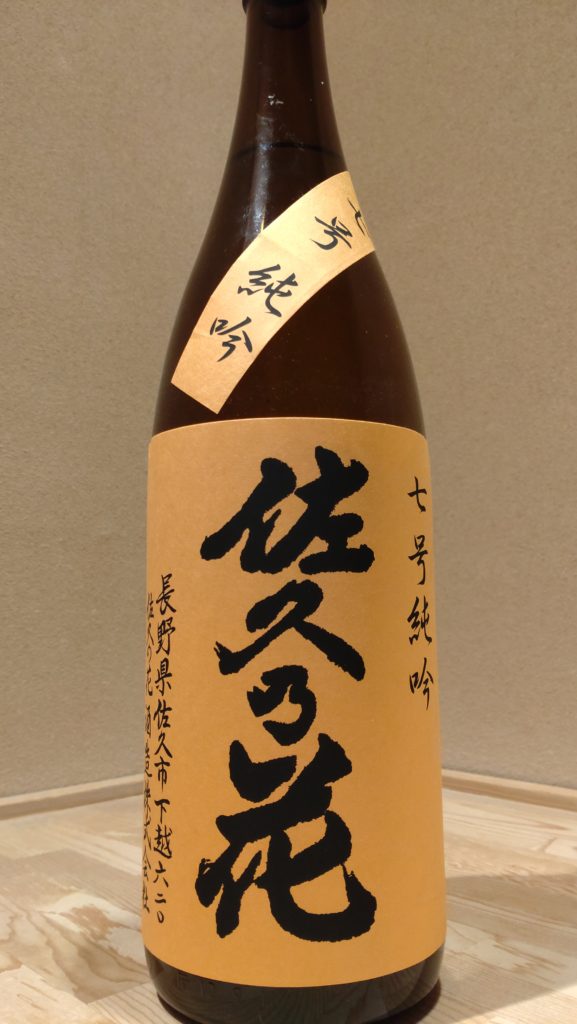 七号
純吟
七号純吟
佐久乃花
長野県佐久市下越六二〇
佐久の花酒造株式会社